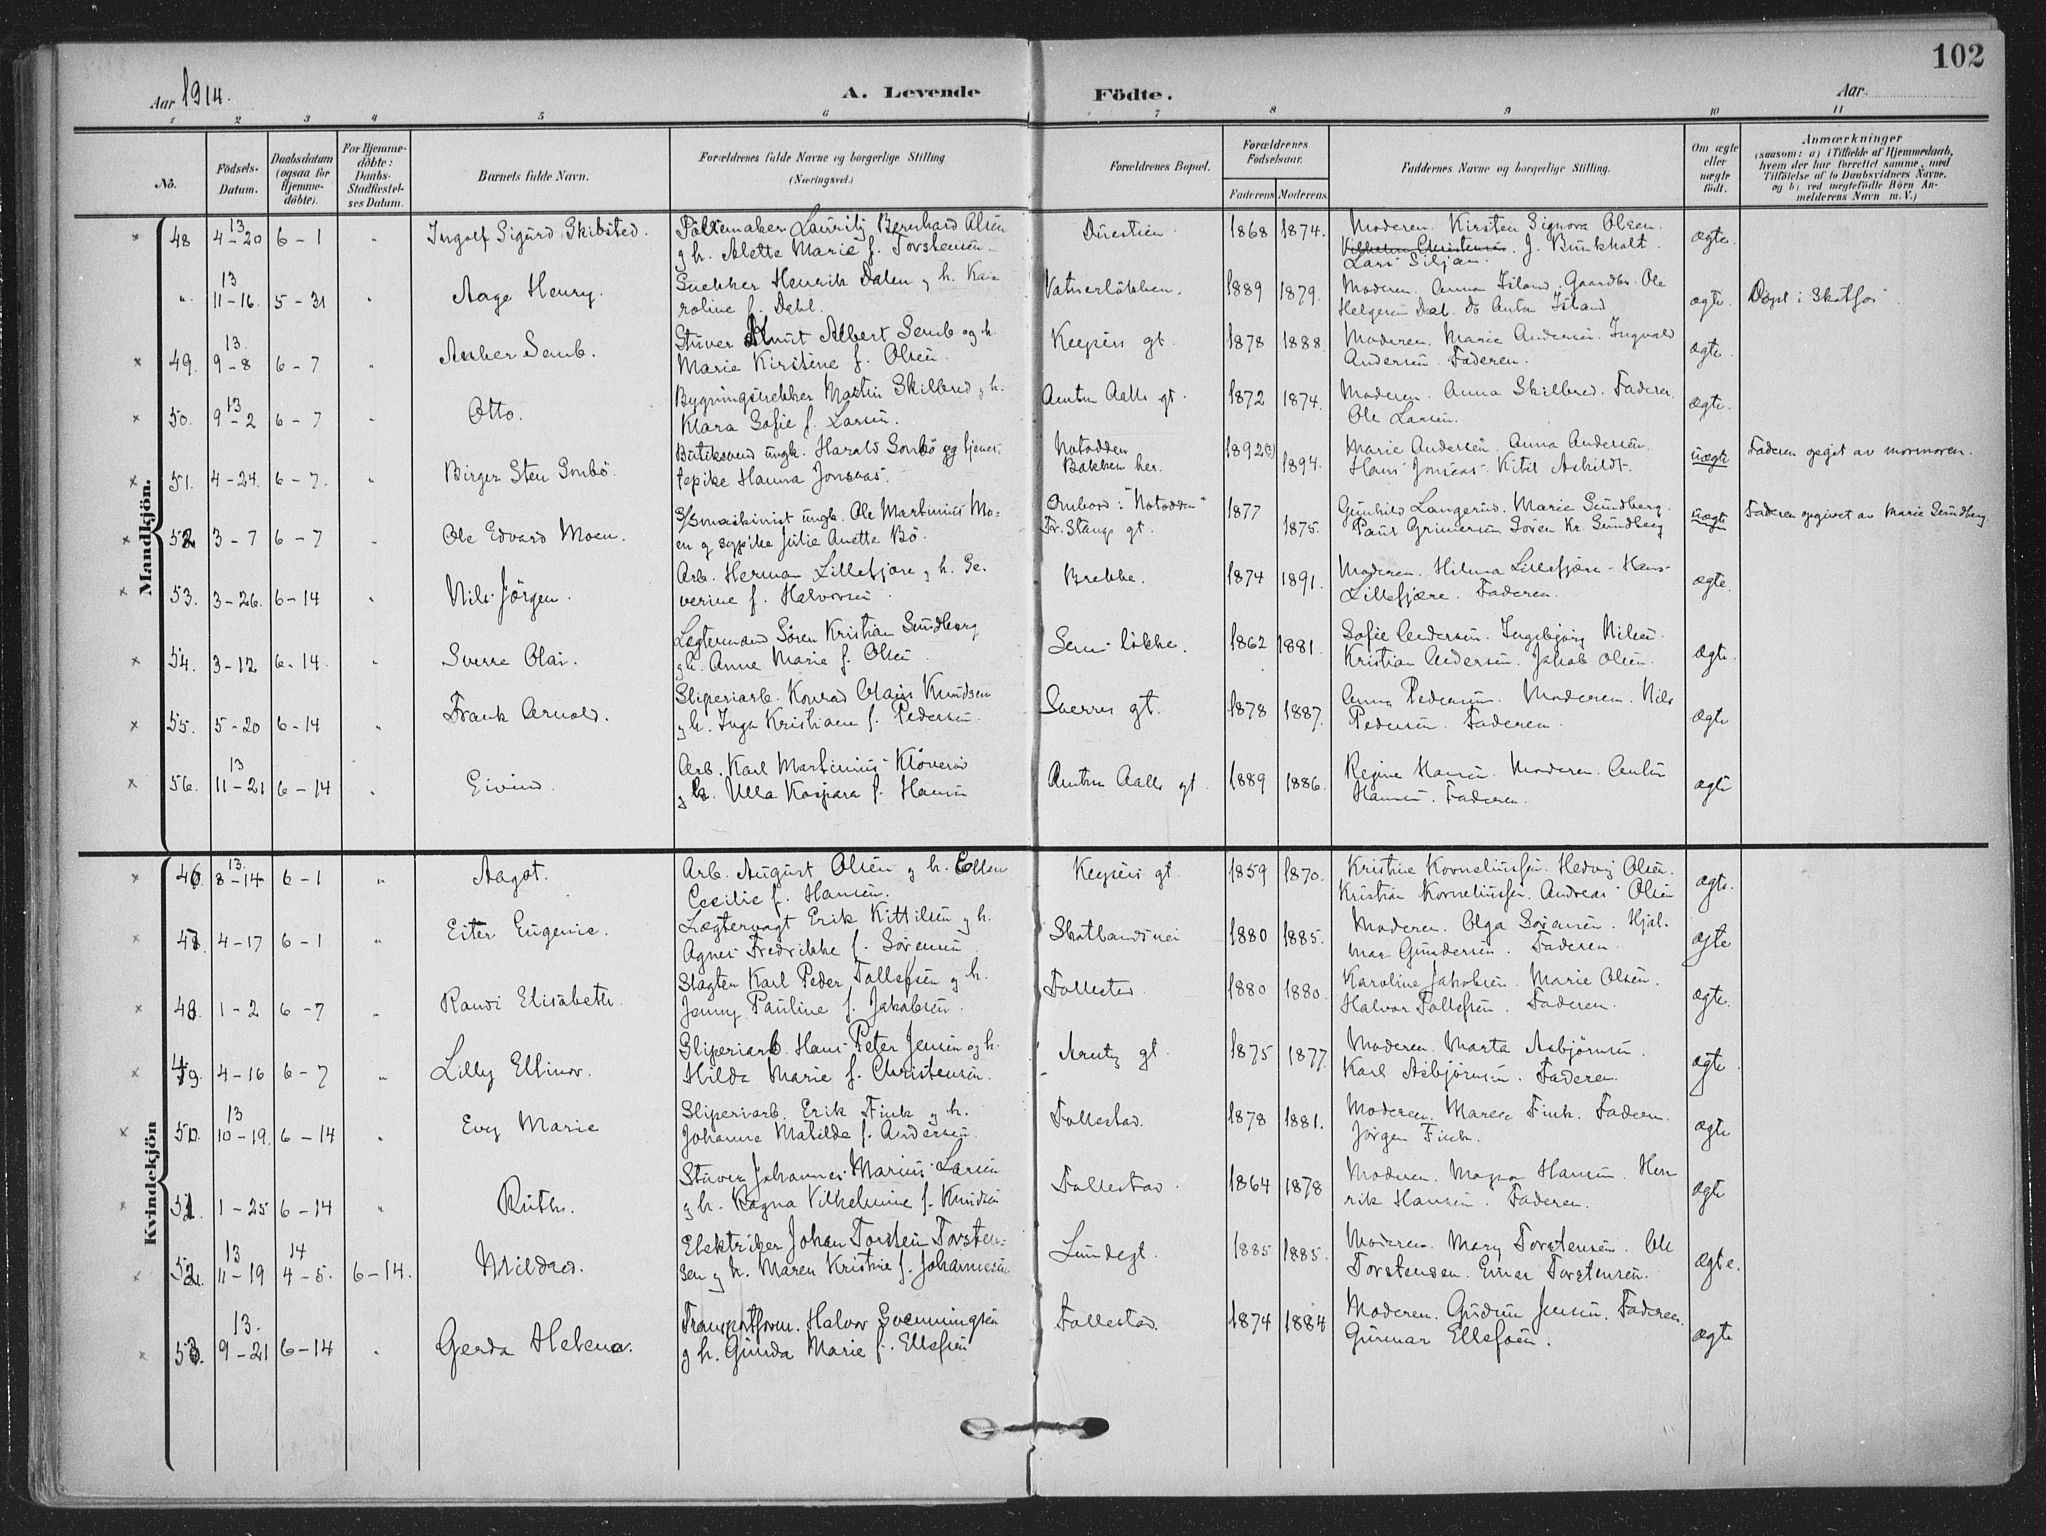 102
Aar 1914.
A. Levende Födte.
Aar
1 2 3 4 5 6 7 8 9 10 11
No.
Födsels-Datum.
Daabsdatum (ogsaa for Hjemme-döbte).
For Hjemme-döbte: Daabs-Stadfæstel-ses Datum.
Barnets fulde Navn.
Forældrenes fulde Navne og borgerlige Stilling (Næringsvei.)
Forældrenes Bopæl.
Forældrenes Födselsaar.
Faderens Moderens
Faddernes Navne og borgerlige Stilling.
Om ægte eller uægte födt.
Anmærkninger
(saasom: a) i Tilfælde af Hjemmedaab, hvem der har forrettet samme, med Tilföielse af to Daabsvidners Navne, og b) ved uægtefödte Börn An-melderens Navn m. V.)
Mandkjön.
13
48 4-20 6-1 " Ingolf Sigurd Skibsted. Lauritz Bernhard Olsen 1868 1874. Moderen. Kirsten Signora Olsen. ægte.
g h. Alette Marie f. Torstensen. J. Bunkholt.
Lars Siljan.
13
" 11-16. 5-31 " Aage Henry. Snekker Henrik Dalen g h. Ka= Vatnerløkken. 1889 1879. Moderen. Anna Island. Gaardbr. Ole ægte. Døpt i Skotfos
roline f. Dahl. Helgesen Dal. Do Anton Island
13.
49. 9-8 6-7 " Anker Semb. Stuver Knut Albert Semb og h. Keysers gt. 1878 1888 Moderen. Marie Andersen. Ingvald ægte.
Marie Kirstine f. Olsen. Andersen. Faderen.
13
50. 9-2 6-7 " Otto. Bygningssnekker Martin Skilbred g h. Anton Aalls gt. 1872 1874. Moderen. Anna Skilbred. Faderen. ægte.
Klara Sofie f. Larsen. Ole Larsen.
51. 4-24. 6-7. " Birger Sten Sonbø. Butiksvend ungk. Harald Sonbø og tjenes- Notodden 1892(3) Marie Andersen. Anna Andersen. uægte Faderen opgit av mormoren.
tepike Hanna Jonsaas. Bakken her. 1894. Hans Jonsaas. Kitil Ashildt.
52. 3-7 6-7 " Ole Edvard Moen. S/Smaskinist ungk. Ole Martinius Mo= Ombord i "Notodden" 1877 Gunhild Langerud. Marie Sundberg. uægte Faderen opgivet av Marie Sundberg
en g sypike Julie Anette Bø. Fr. Stangs gt. 1875. Paul Grimersen Søren Kr. Sundberg
53. 3-26. 6-14 " Nils Jörgen. Arb. Herman Lillefjære g h. Se= Brekke. 1874 1891. Moderen. Helena Lillefjære. Hans ægte.
verine f. Halvorsen. Lillefjære. Faderen.
54. 3-12 6-14. " Sverre Olai. Lægtermand Søren Kristian Sundberg løkke. 1862 1881. Sofie Andersen. Ingebjørg Nilsen. ægte.
g h. Anne Marie f. Olsen. Kristian Andersen. Jakob Olsen.
55. 5-20 6-14 " Frank Arnold. Sliperiarb. Konrad Olaus Knudsen Sverres gt. 1878 1887. Anna Pedersen. Moderen. Nils ægte
g h. Inga Kristiane f. Pedersen. Pedersen. Faderen.
13
56. 11-21 6-14 " Eivind. Arb. Karl Martinius Kløverød Anton Aalls gt. 1889 1886. Regine Hansen. Moderen. Anton ægte
g h. Ulla Kaspara f. Hansen Hansen. Faderen.
Kvindekjön
13.
46. 8-14 6-1 " Aagot. Arb. August Olsen g h. Ellen Keysers gt. 1859 1870. Kristine Korneliussen. Hedvig Olsen. ægte.
Cecilie f. Hansen. Kristian Korneliussen. Andreas Olsen
47. 4-17 6-1 " Ester Eugenie. Lægtervagt Erik Kittilsen g h. Skotlandsvei 1880 1885. Moderen. Olga Sørensen. Hjal- ægte
Agnes Fredrikke f. Sørensen mar Gundersen. Faderen.
48. 1-2 6-7 " Randi Elisabeth. Slagter Karl Peder Follefsen g h. Follestad. 1880 1880. Karoline Jakobsen. Marie Olsen. ægte.
Jenny Pauline f. Jakobsen. Halvor Tollefsen. Faderen.
49. 4-16 6-7 " Lilly Ellinor. Sliperiarb. Hans Peter Jensen og h. Arentz gt. 1875 1877. Moderen. Marta Asbjørnsen. ægte.
Hilda Marie f. Christensen. Karl Asbjørnsen. Faderen.
13
50. 10-19. 6-14 " Evy Marie Sliperiarb. Erik Fink g h. Follestad. 1878 1881. Moderen. Maren Fink. Faderen. ægte
Johanne Matilde f. Andersen. Jørgen Fink.
51. 1-25 6-14 " Ruth. Stuver Johannes Marius Larsen Follestad. 1864 1878 Moderen. Magna Hansen. Hen ægte
g h. Ragna Vilhelmine f. Knudsen rik Hansen. Faderen.
13 14
52. 11-19 4-5. 6-14. Mildred. Elektriker Johan Torstein Torsten= Lundegt. 1885 1885. Moderen. Mary Torstensen. Ole ægte.
sen g h. Maren Kristine f. Johannesen Torstensen. Einar Torstensen.
13.
53. 9-21 6-14 " Gerda Helena. Transportform. Halvor Svenningsen Follestad. 1874 1884 Moderen. Gudrun Jensen. Faderen. ægte
g h. Gunda Marie f. Ellefsen Gunnar Ellefsen.